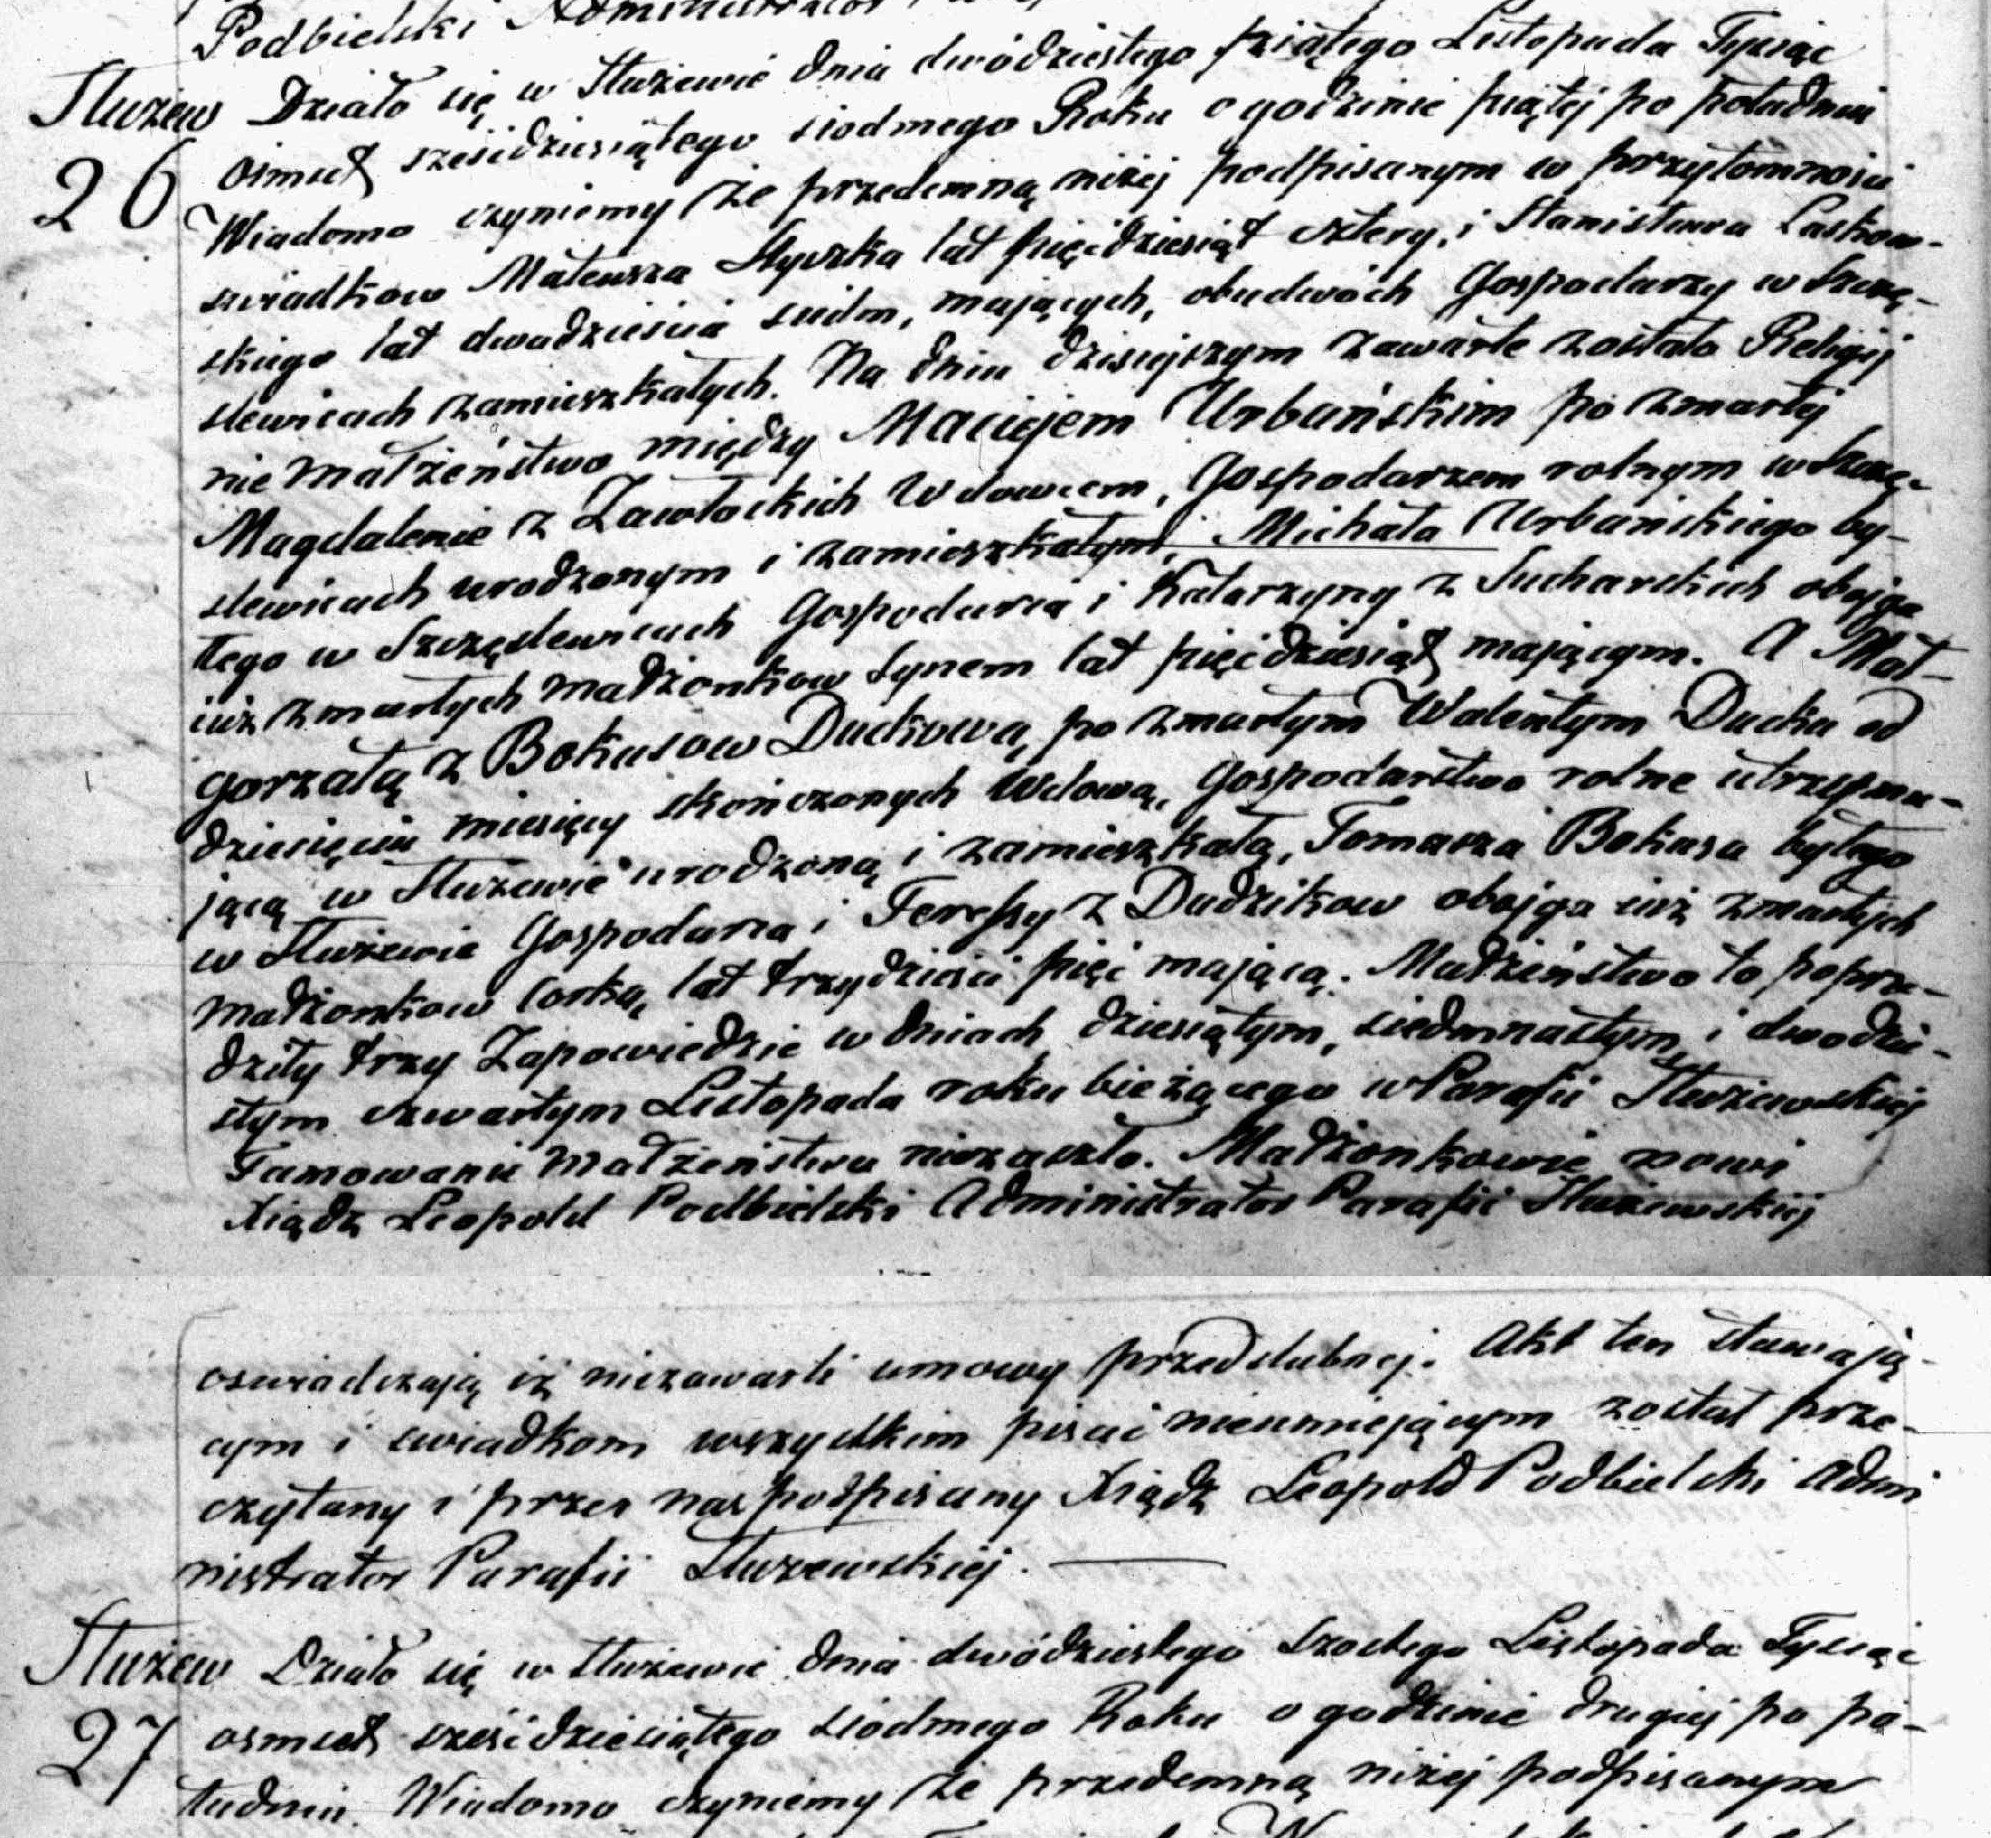 Podbielski Administrator
Służew Działo się w Służewie dnia dwódziestego piątego Listopada Tysiąc
26 ośmset sześćdziesiątego siodmego Roku o godzinie piątej po południu
Wiadomo czyniemy że przedemną niżej podpisanym w przytomności
swiadkow Mateusza Styszka lat pięćdziesiąt cztery, i Stanisława Laskow-
skiego lat dwadzieścia siedm, mających, obudwóch Gospodarzy w Szczę-
slewicach zamieszkałych. Na dniu dzisiejszym zawarte zostało Religij
nie Małżeństwo między Maciejem Urbańskim po zmarłej
Magdalenie z Zawłockich Wdowcem, Gospodarzem rolnym w Szczę-
slewicach urodzonym i zamieszkałym, Michała Urbańskiego by-
łego w Szczęslewicach Gospodarza i Katarzyny z Sucharskich obojga
już zmarłych małżonkow Synem lat pięćdziesiąt mającym. A Mał-
gorzatą z Bokusow Duckową po zmarłym Walentym Ducka od
dziesięciu miesięcy skończonych Wdową, Gospodarstwo rolne utrzymu-
jącą w Służewie urodzoną i zamieszkałą, Tomasza Bokusa byłego
w Służewie Gospodarza i Teressy z Dudzikow obojga już zmarłych
małżonkow Corką, lat trzydzieści pięć mającą. Małżeństwo to poprze-
dziły trzy Zapowiedzie w dniach dziesiątym, siedmnastym i dwodzie-
stym czwartym Listopada roku bieżącego w Parafii Służewskiej
Tamowanie Małżeństwa niezaszło. Małżonkowie nowi
Xiądz Leopold Podbielski Administrator Parafii Służewskiej
oswiadczają iż niezawarli umowy przedslubnej. Akt ten stawają-
cym i swiadkom wszystkim pisać nieumiejącym został prze-
czytany i przez nas podpisany Xiądz Leopold Podbielski Admi
nistrator Parafii Służewskiej.
Służew Działo się w Służewie dnia dwódziestego Szostego Listopada Tysiąc
27 osmset sześćdziesiątego siódmego Roku o godzinie drugiej po po-
łudniu. Wiadomo czyniemy że przedemną niżej podpisanym